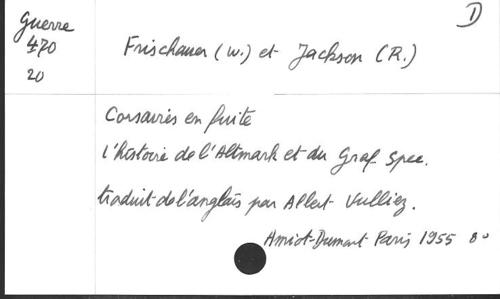 Guerre
470
20
D
Frischauer (W.) et Jackson (R.)
Corsaires en fuite
L'histoire de l'Altmark et du Graf Spee.
traduit de l'anglais par Albert Vulliez.
Amiot-Dumont Paris 1955 8°